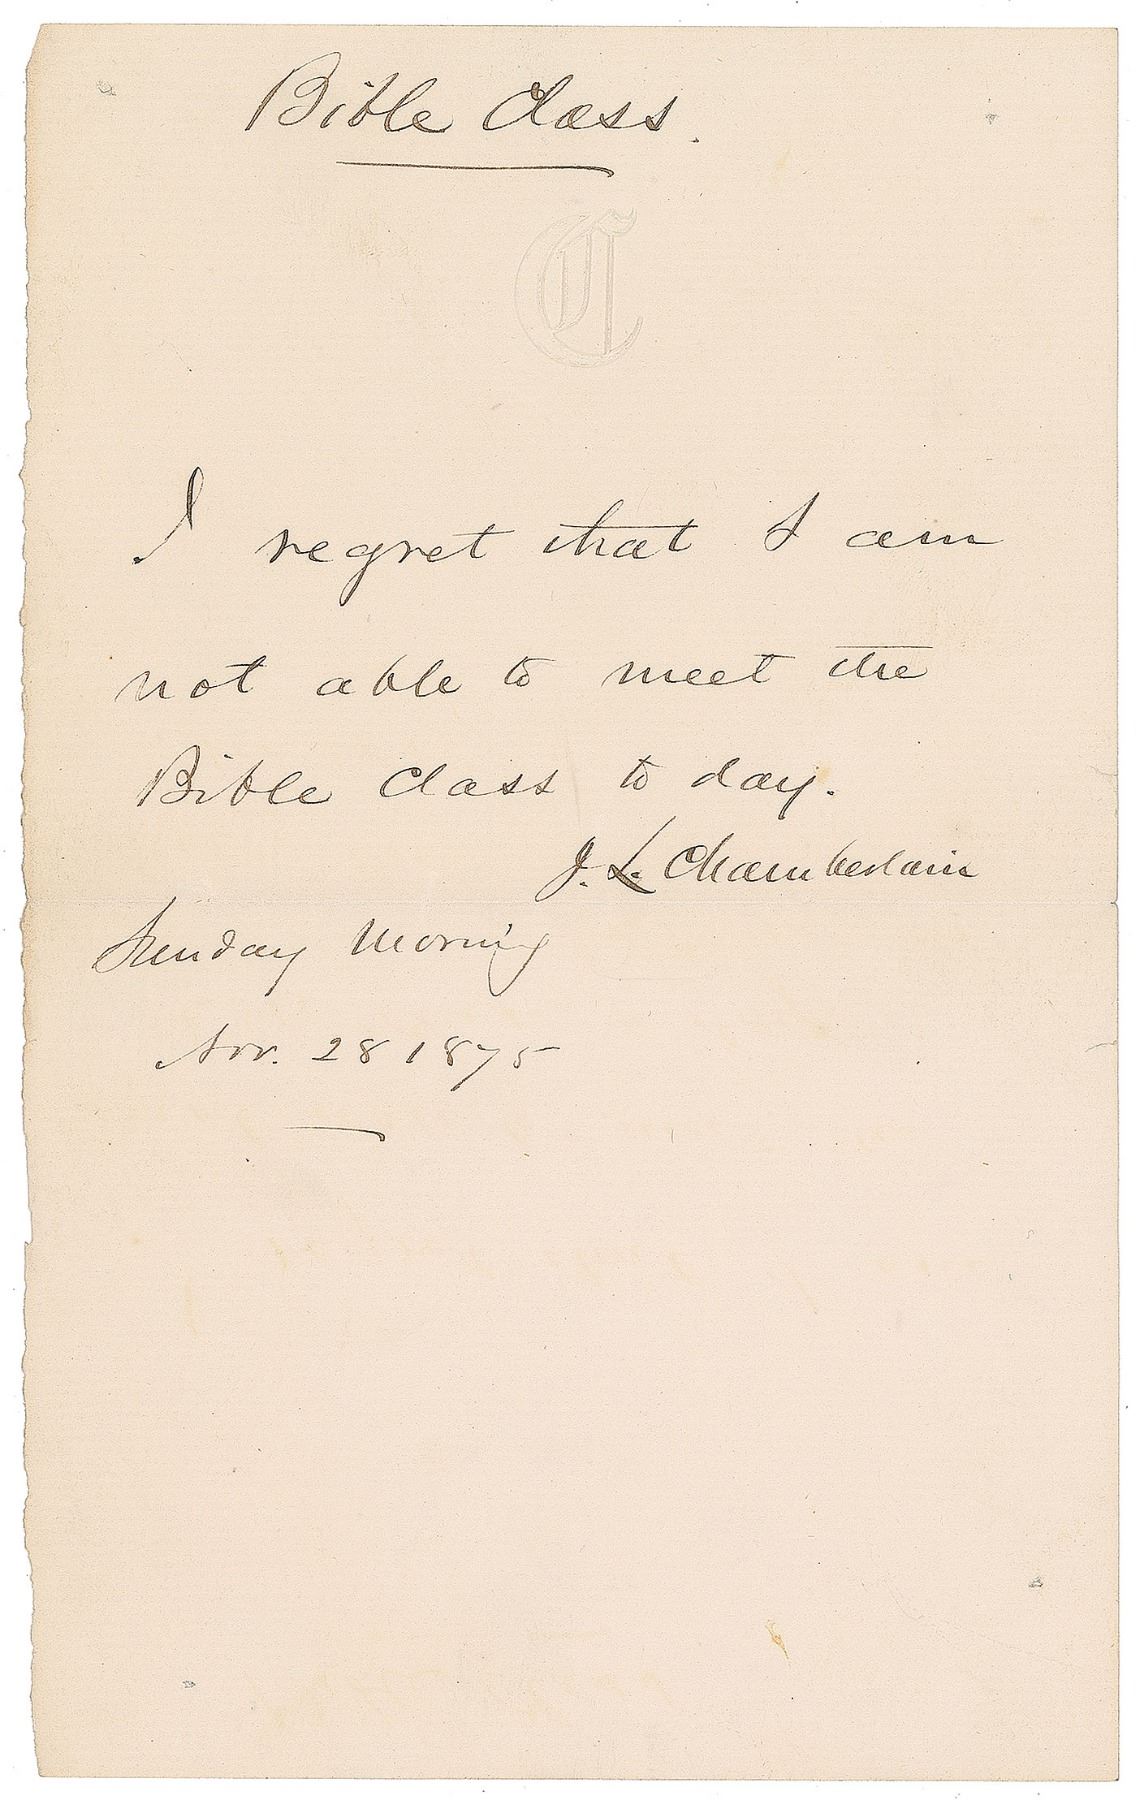 Bible Class.
C
I regret that I am
not able to meet the
Bible Class to day.
J. L. Chamberlain
Sunday Morning
Nov. 28 1875